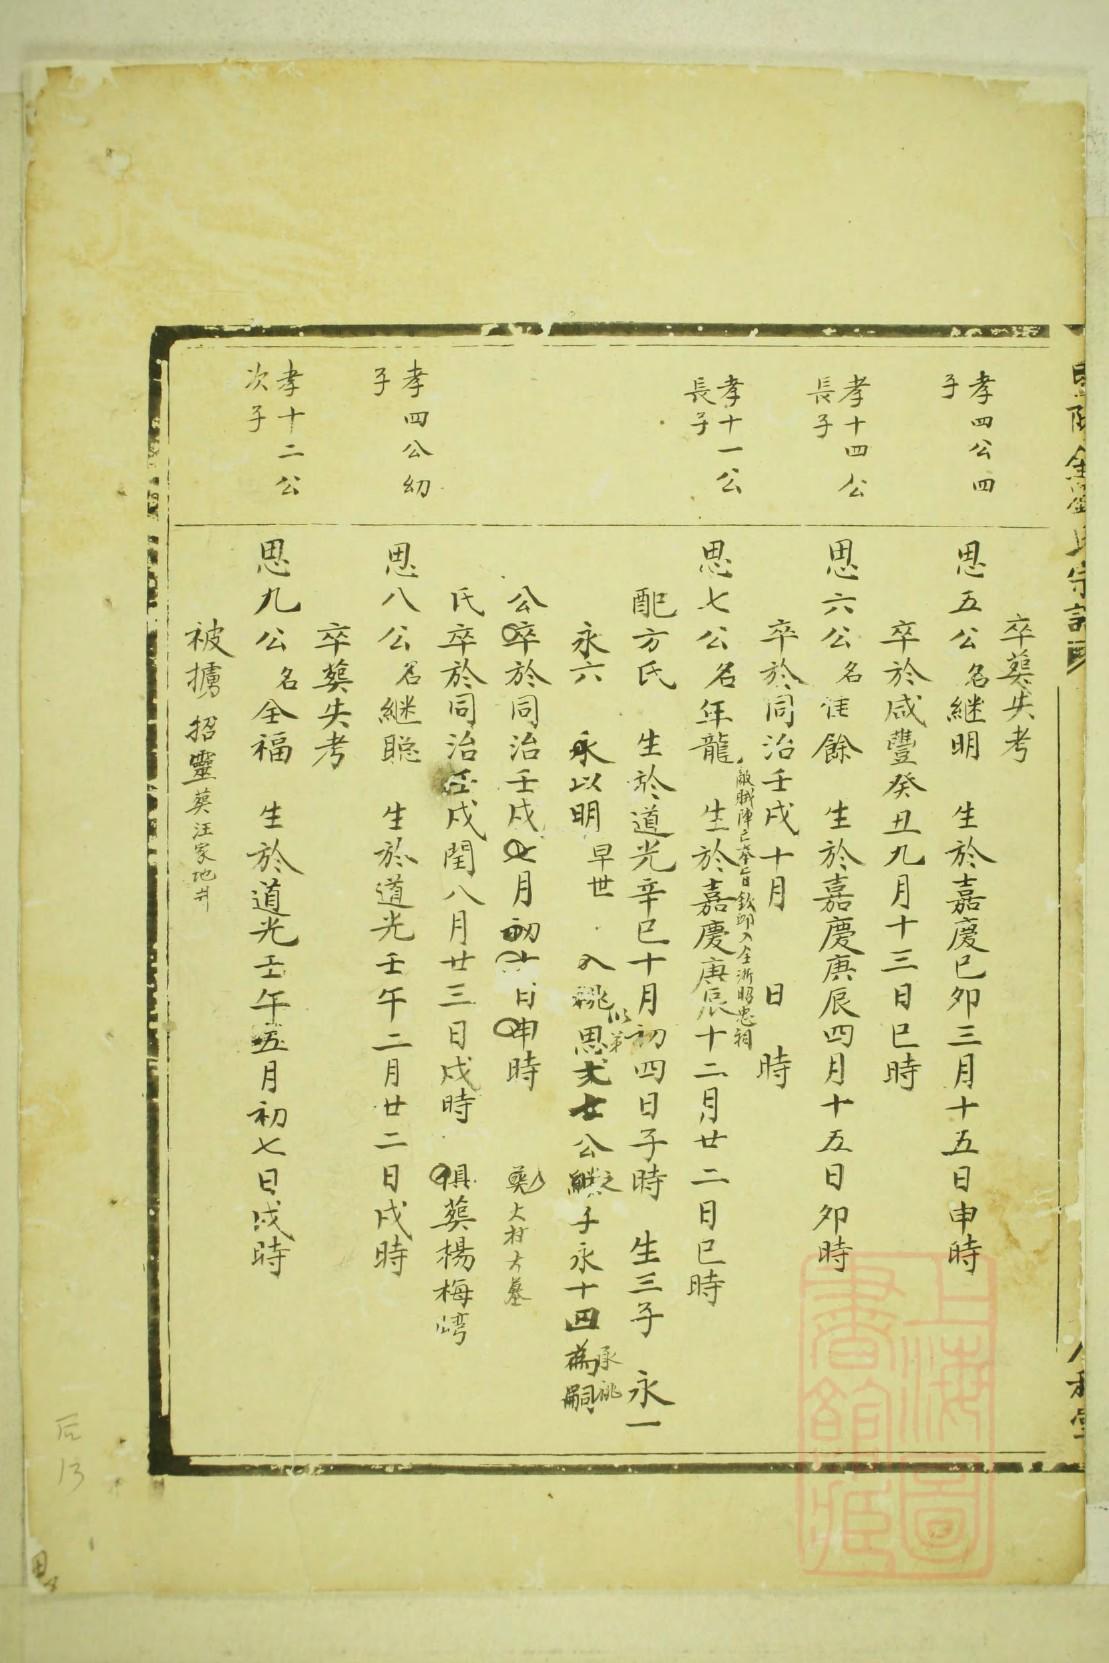 卒葬失考
孝四公四
子
思五公名継明 生於嘉慶己卯三月十五日申時
卒於咸豐癸丑九月十三日巳時
孝十四公
長子
思六公名佳餘 生於嘉慶庚辰四月十五日卯時
卒於同治壬戌十月 日 時
孝十一公
長子
思七公名年龍 生於嘉慶庚辰十二月廿二日巳時
敵賊陣亡奉旨欽卹入全浙昭忠祠
配方氏 生於道光辛巳十月初四日子時 生三子 永一
永六 永以明早世 入祧思 公継子永十四為嗣
承祧
公卒於同治壬戌 月初 日申時 葬大村大墓
氏卒於同治壬戌閏八月廿三日戌時 俱葬楊梅灣
孝四公幼
子
思八公名継聰 生於道光壬午二月廿二日戌時
卒葬失考
孝十二公
次子
思九公名全福 生於道光壬午五月初七日戌時
被擄 招靈葬汪家地井
后13
上海圖
書館藏